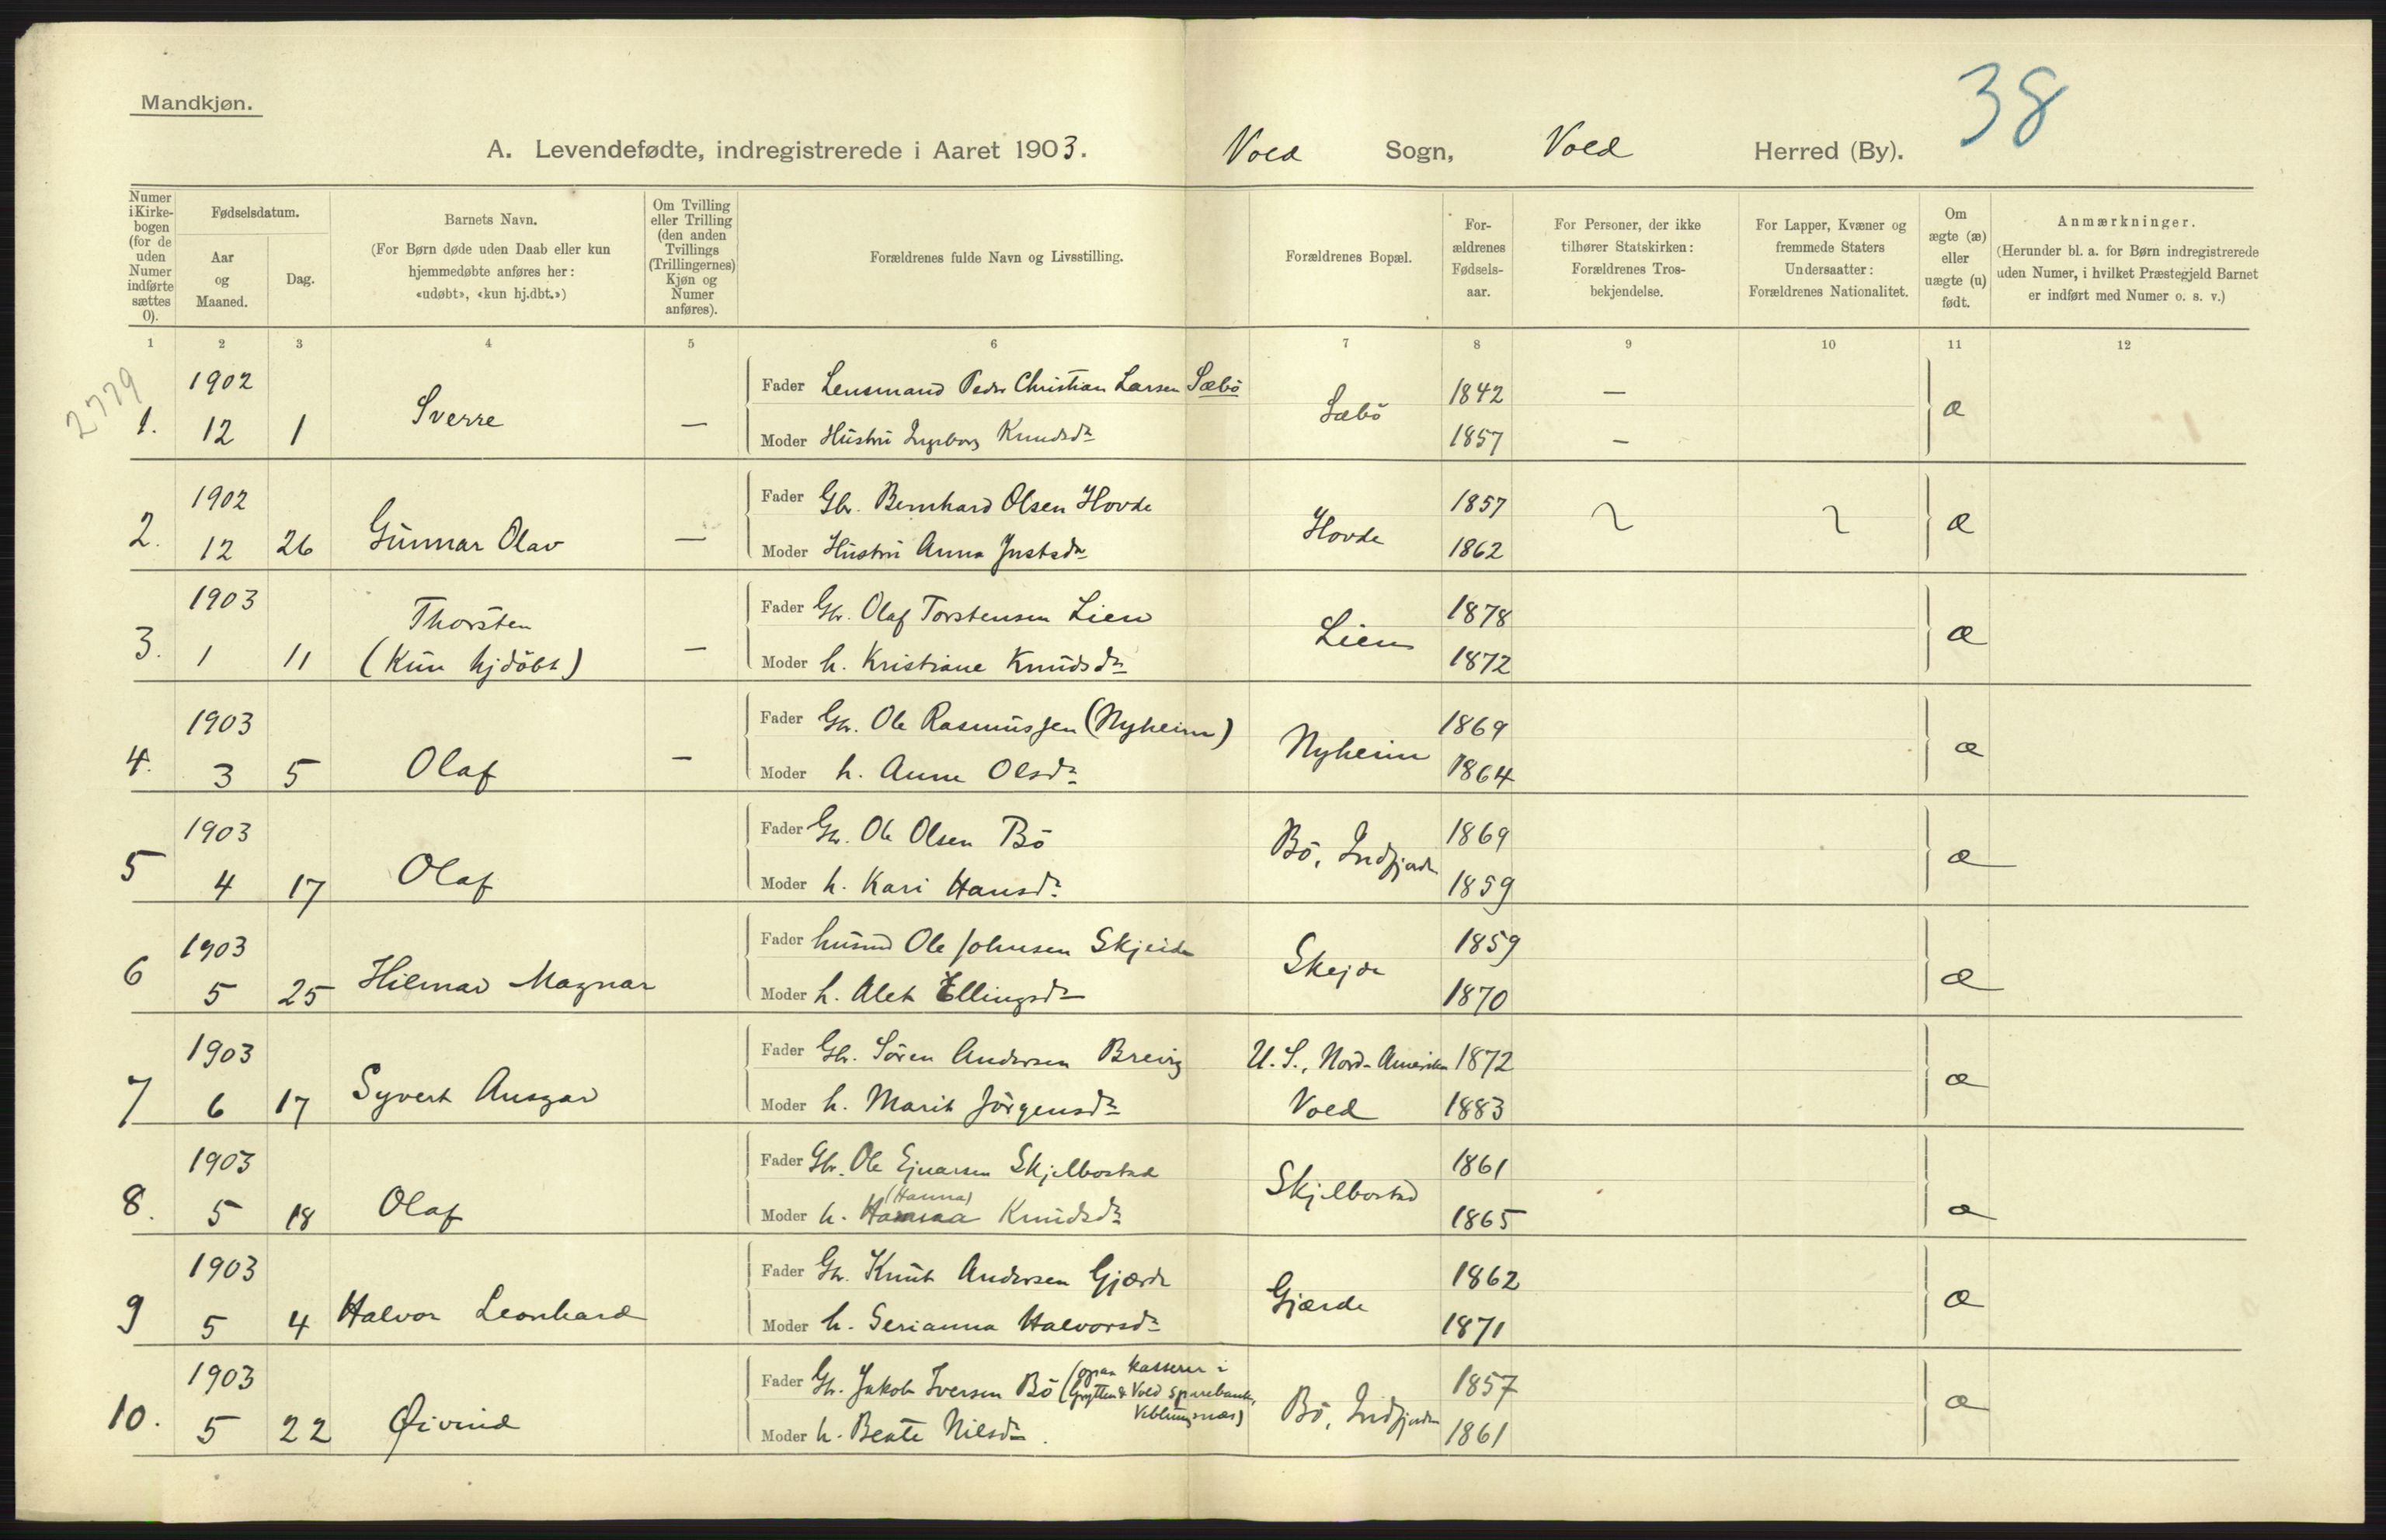 38
Mandkjøn.
A. Levendefødte, indregistrerede i Aaret 1903. Vold Sogn, Vold Herred (By).
Numer i Kirkebogen (for de uden Numer indførte sættes 0).
Fødselsdatum.
Aar og Maaned.
Dag.
Barnets Navn.
(For Børn døde uden Daab eller kun hjemmedøbte anføres her: «udøbt», «kun hj.dbt.»)
Om Tvilling eller Trilling (den anden Tvillings (Trillingernes) Kjøn og Numer anføres).
Forældrenes fulde Navn og Livsstilling.
Forældrenes Bopæl.
For-ældrenes Fødsels-aar.
For Personer, der ikke tilhører Statskirken: Forældrenes Tros-bekjendelse.
For Lapper, Kvæner og fremmede Staters Undersaatter: Forældrenes Nationalitet.
Om ægte (æ) eller uægte (u) født.
Anmærkninger.
(Herunder bl. a. for Børn indregistrerede uden Numer, i hvilket Præstegjeld Barnet er indført med Numer o. s. v.)
1 2 3 4 5 6 7 8 9 10 11 12
2779
1902 Fader Lensmand Peder Christian Larsen Sæbö 1842 —
1. 12 1 Sverre — Sæbö æ
Moder Hustru Ingeborg Knudsdr 1857 —
1902 Fader Gbr. Bernhard Olsen Hovde 1857
2. 12 26 Gunnar Olav — Hovde æ
Moder Hustru Anna Justsdr 1862
1903 Fader Gbr. Olaf Torstensen Lien 1878
3. 1 11 Thorsten — Lien æ
(Kun hjdöbt) Moder h. Kristiane Knudsdr 1872
1903 Fader Gbr. Ole Rasmussen (Nyheim) 1869
4. 3 5 Olaf — Nyheim æ
Moder h. Anne Olsdr 1864
1903 Fader Gbr. Ole Olsen Bö 1869
5 4 17 Olaf Bö, Indfjord æ
Moder h. Kari Hansdr 1859
1903 Fader husmd Ole Johnsen Skjeide 1859
6 5 25 Hilmar Magnar Skejde æ
Moder h. Alet Ellingsdr 1870
1903 Fader Gbr. Sören Andersen Breivig U. S., Nord-Amerika 1872
7 6 17 Syvert Ansgar æ
Moder h. Marit Jörgensdr Vold 1883
1903 Fader Gbr. Ole Ejnarsen Skjelbostad 1861
8. 5 18 Olaf Skjelbostad æ
(Hanna)
Moder h. Knudsdr 1865
1903 Fader Gbr. Knut Andersen Gjærde 1862
9 5 4 Halvor Leonhard Gjærde æ
Moder h. Serianna Halvorsdr 1871
1903 Fader Gbr. Jakob Iversen Bö (ogsaa kasserer i Grytten & Vold sparebank, Veblungsnæs) 1857
10. 5 22 Øivind Bö, Indfjorden æ
Moder h. Beate Nilsdr. 1861